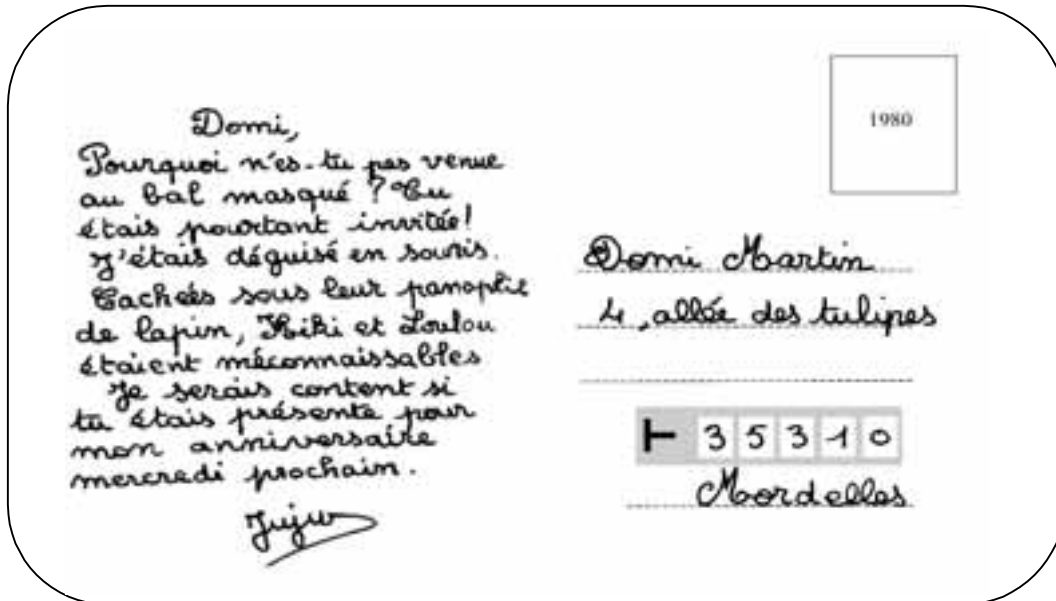 Domi,
Pourquoi n'es-tu pas venue
au bal masqué ? Tu
étais pourtant invitée !
J'étais déguisé en souris.
Cachées sous leur panoplie
de lapin, Kiki et Loulou
étaient méconnaissables
Je serais content si
tu étais présente pour
mon anniversaire
mercredi prochain.
Juju
1980
Domi Martin
4, allée des tulipes
35310
Mordelles